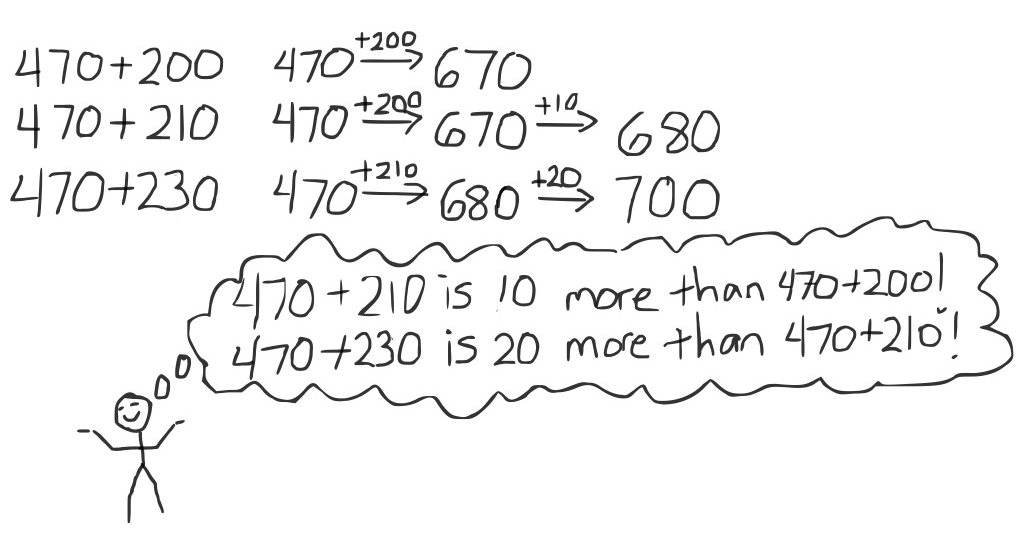 470+200 470 +200→ 670
470+210 470 +200→ 670 +10→ 680
470+230 470 +210→ 680 +20→ 700
470+210 is 10 more than 470+200!
470+230 is 20 more than 470+210!